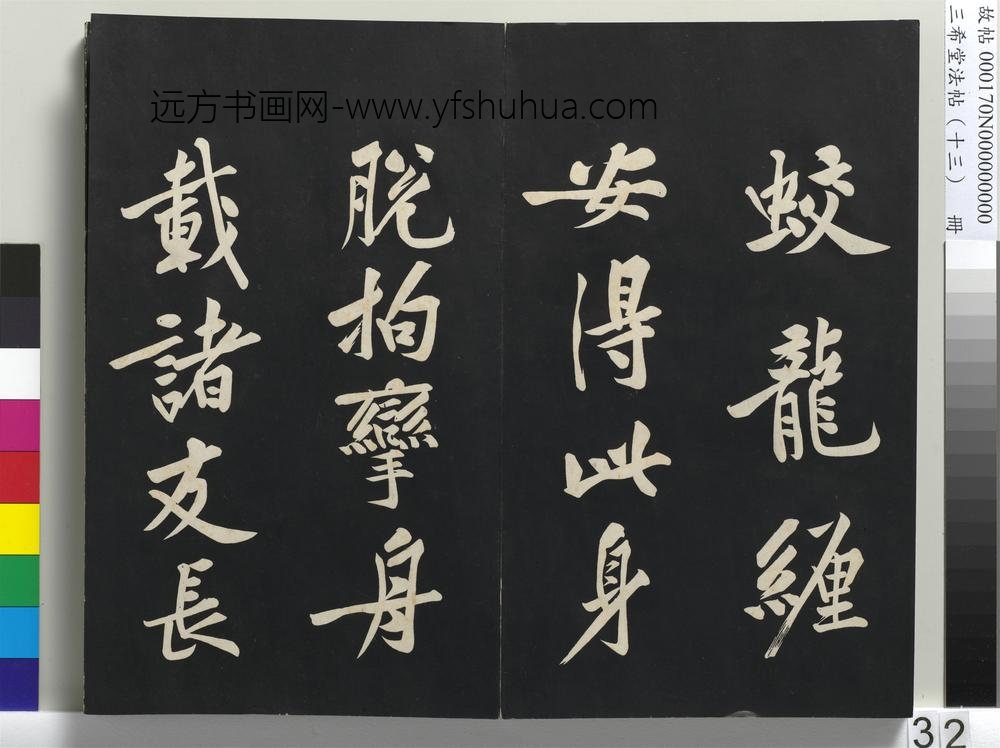 蛟龍纏
安得此身
脫拘攣舟
載諸友長
远方书画网-www.yfshuhua.com
故帖 000170N000000000
三希堂法帖（十三） 册
32